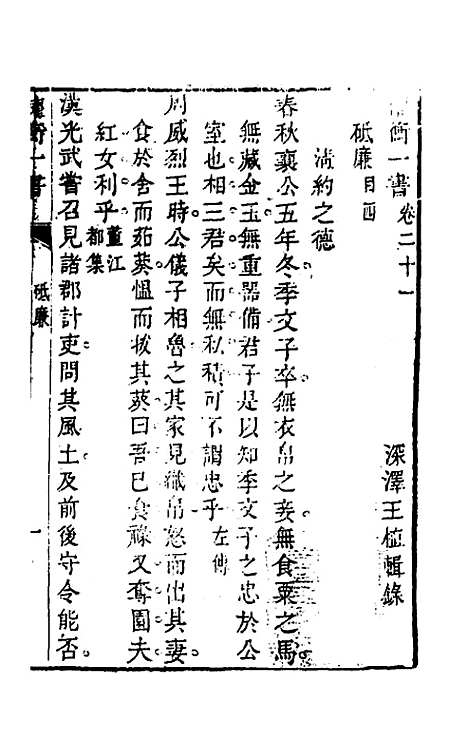 衡一書卷二十一
深澤王植輯錄
砥廉目四
清約之德
春秋襄公五年冬季文子卒無衣帛之妾無食粟之馬
無藏金玉無重器備君子是以知季文子之忠於公
室也相三君矣而無私積可不謂忠乎左傳
周威烈王時公儀子相魯之其家見織帛怒而出其妻
食於舍而茹葵慍而拔其葵曰吾已食祿又奪園夫
紅女利乎董江都集
漢光武嘗召見諸郡計吏問其風土及前後守令能否
衡一書
砥廉
一